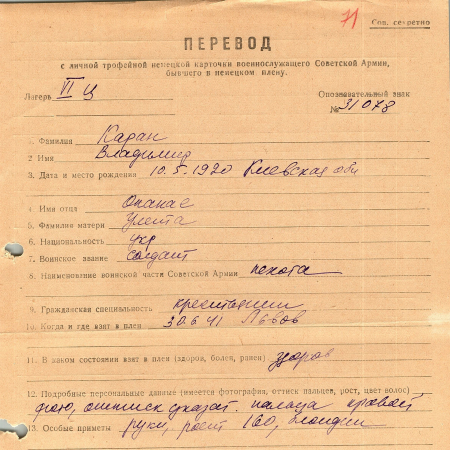 71
Сов. секретно
ПЕРЕВОД
с личной трофейной немецкой карточки военнослужащего Советской Армии,
бывшего в немецком плену.
Лагерь VI Ц
Опознавательный знак
№ 31078
1. Фамилия Каран
2. Имя Владимир
3. Дата и место рождения 10.5.1920 Киевская обл
4. Имя отца Опанас
5. Фамилия матери Улита
6. Национальность укр
7. Воинское звание солдат
8. Наименование воинской части Советской Армии пехота
9. Гражданская специальность крестьянин
10. Когда и где взят в плен 30.6.41 Львов
11. В каком состоянии взят в плен (здоров, болен, ранен) здоров
12. Подробные персональные данные (имеется фотография, оттиск пальцев, рост, цвет волос)
фото, оттиск указат. пальца правой
13. Особые приметы руки, рост 160, блондин